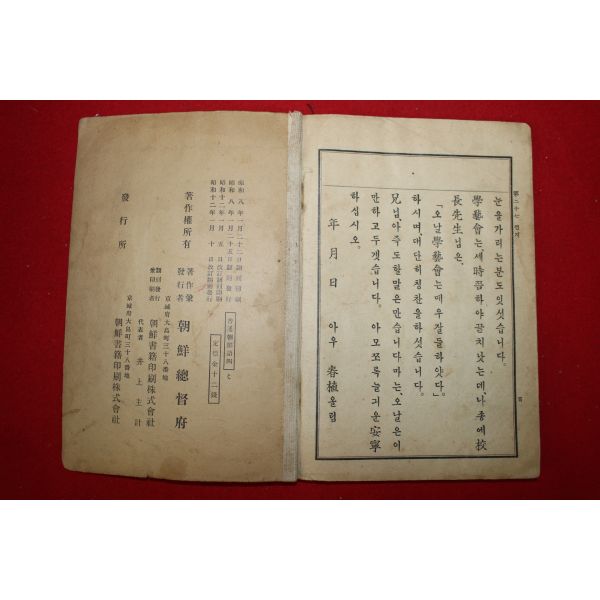 第二十七 편지
눈을가리는분도잇섯습니다.
學藝會는,세時쯤하야끝치낫는데,나종에校
長先生님은,
「오날學藝會는매우잘들하얏다.」
하시며,대단히칭찬을하섯습니다.
兄님,아즉도할말은만습니다마는,오날은이
만하고두겟습니다. 아모쪼록늘긔운安寧
하십시오.
年 月 日 아우 春植올림
昭和八年一月二十二日翻刻印刷
昭和八年一月二十五日翻刻發行
昭和十二年一月五日改訂翻刻印刷
昭和十二年一月十日改訂翻刻發行
定價金十二錢
著作權所有
著作兼發行者 朝鮮總督府
京城府大島町三十八番地
翻刻發行兼印刷者 朝鮮書籍印刷株式會社
代表者 井上主計
京城府大島町三十八番地
發行所 朝鮮書籍印刷株式會社